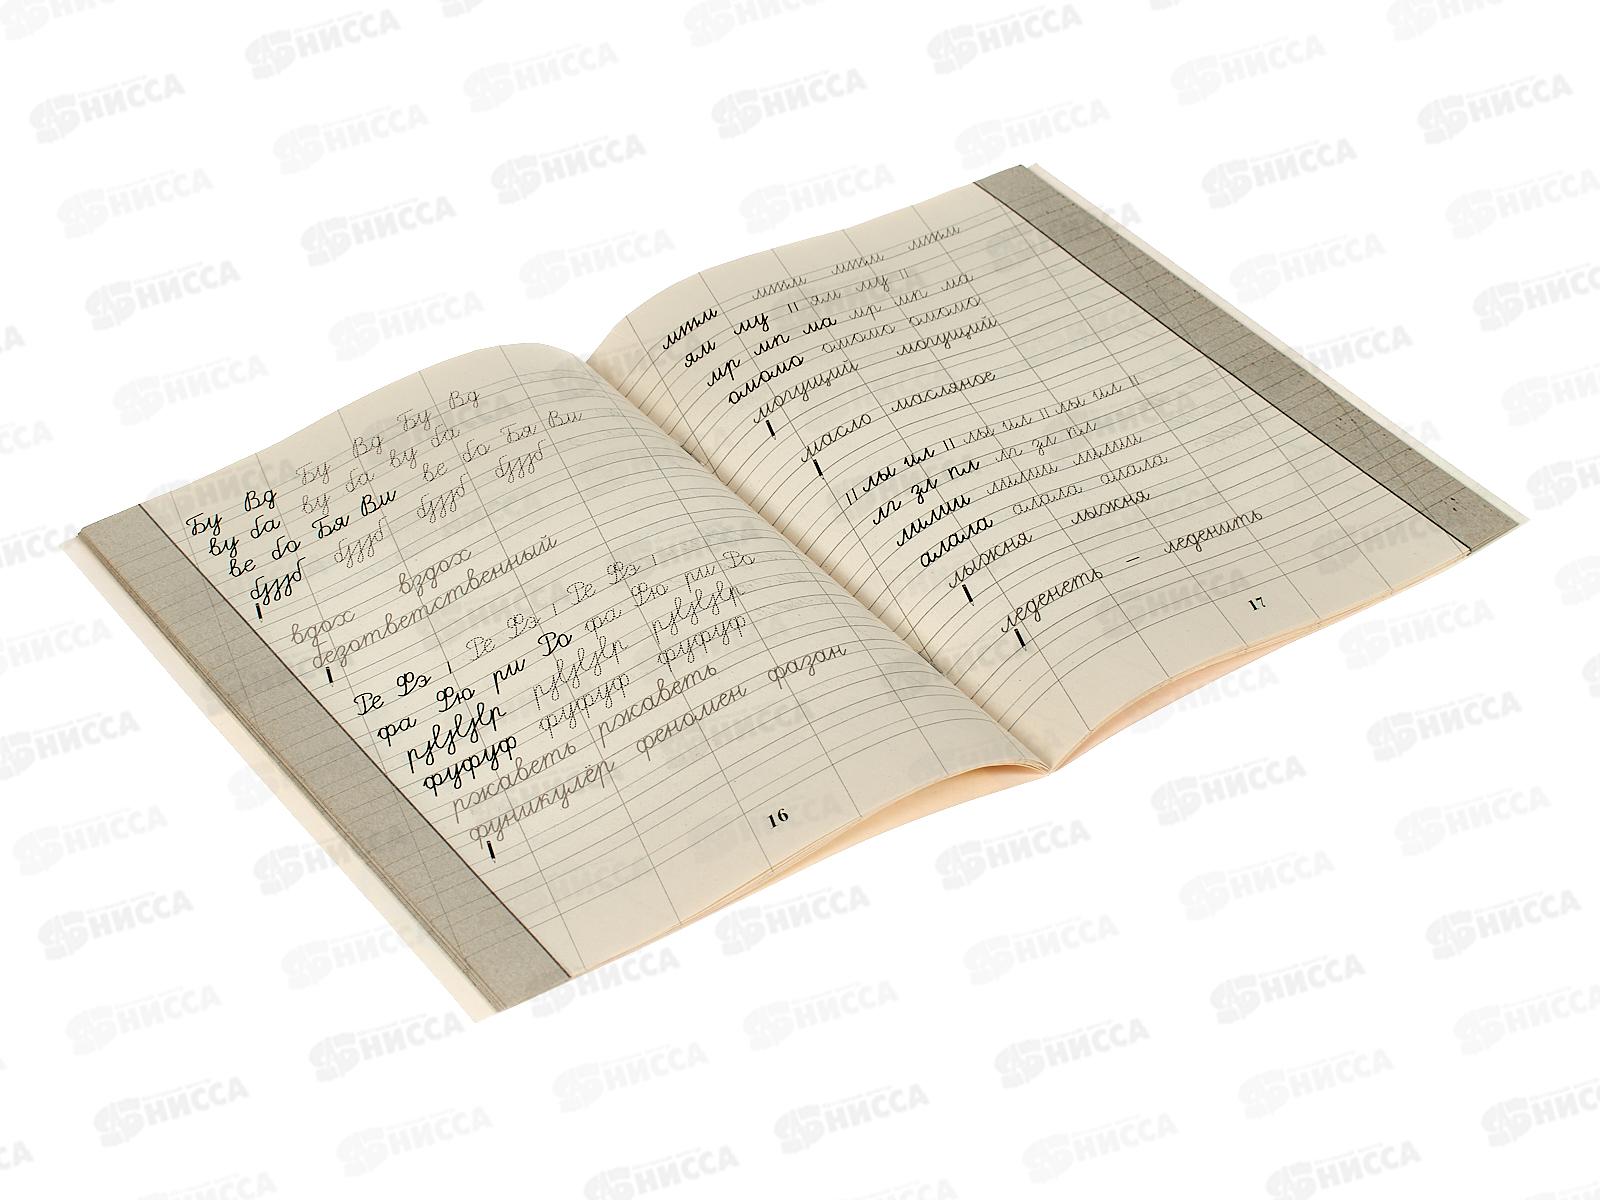 Бу Вд Бу Вд Бу Вд
ву ба ву ба ву ба
ве бо Бя Ви ве бо Бя Ви
вдох вздох
безответственный
Ре Фэ | Ре Фэ | Ре Фэ |
фа Фю ри Ро фа Фю ри Ро
фуфуф фуфуф фуфуф
ржаветь ржаветь
фуникулёр феномен фазан
16
мтм мтм мтм мтм
ям му || ям му ||
мр мп ма мр мп ма
омомо омомо омомо
могущий могущий
масло масляное
|| лы ил || лы ил || лы ил ||
лг зл пл лг зл пл
лилии лилии лилии
алала алала алала
лыжня лыжня
леденеть — леденить
17
НИССА